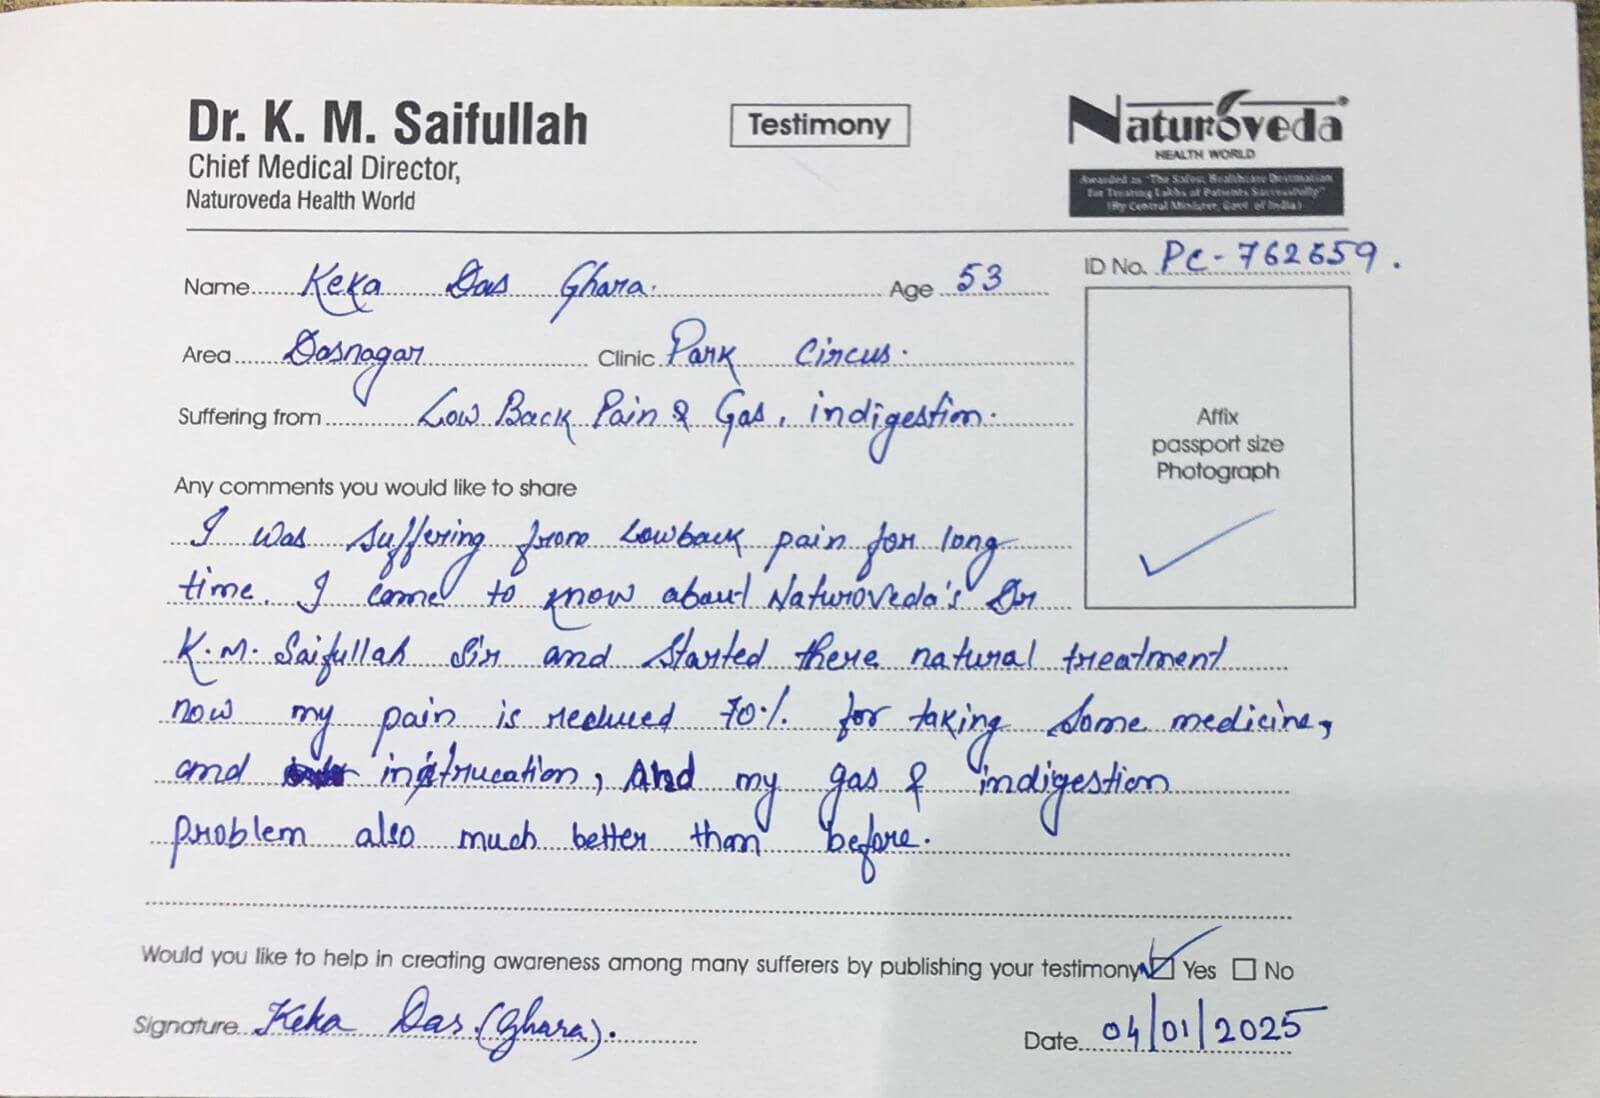 Dr. K. M. Saifullah
Chief Medical Director,
Naturoveda Health World
Testimony
Naturoveda
HEALTH WORLD
Awarded as "The Safest Healthcare Destination
for Treating Lakhs of Patients Successfully"
(By Central Minister, Govt. of India)
ID No. PC-762659.
Name Keka Das Ghara. Age 53
Area Dasnagar Clinic Park Circus.
Suffering from Low Back Pain & Gas, indigestion.
Affix
passport size
Photograph
Any comments you would like to share
I was suffering from Lowback pain for long
time. I come to know about Naturoveda's Dr
K.M. Saifullah Sir and started there natural treatment
now my pain is reduced 70% for taking some medicine,
and instrucation, And my gas & indigestion
problem also much better than before.
Would you like to help in creating awareness among many sufferers by publishing your testimony Yes No
Signature Keka Das (Ghara).
Date 04/01/2025